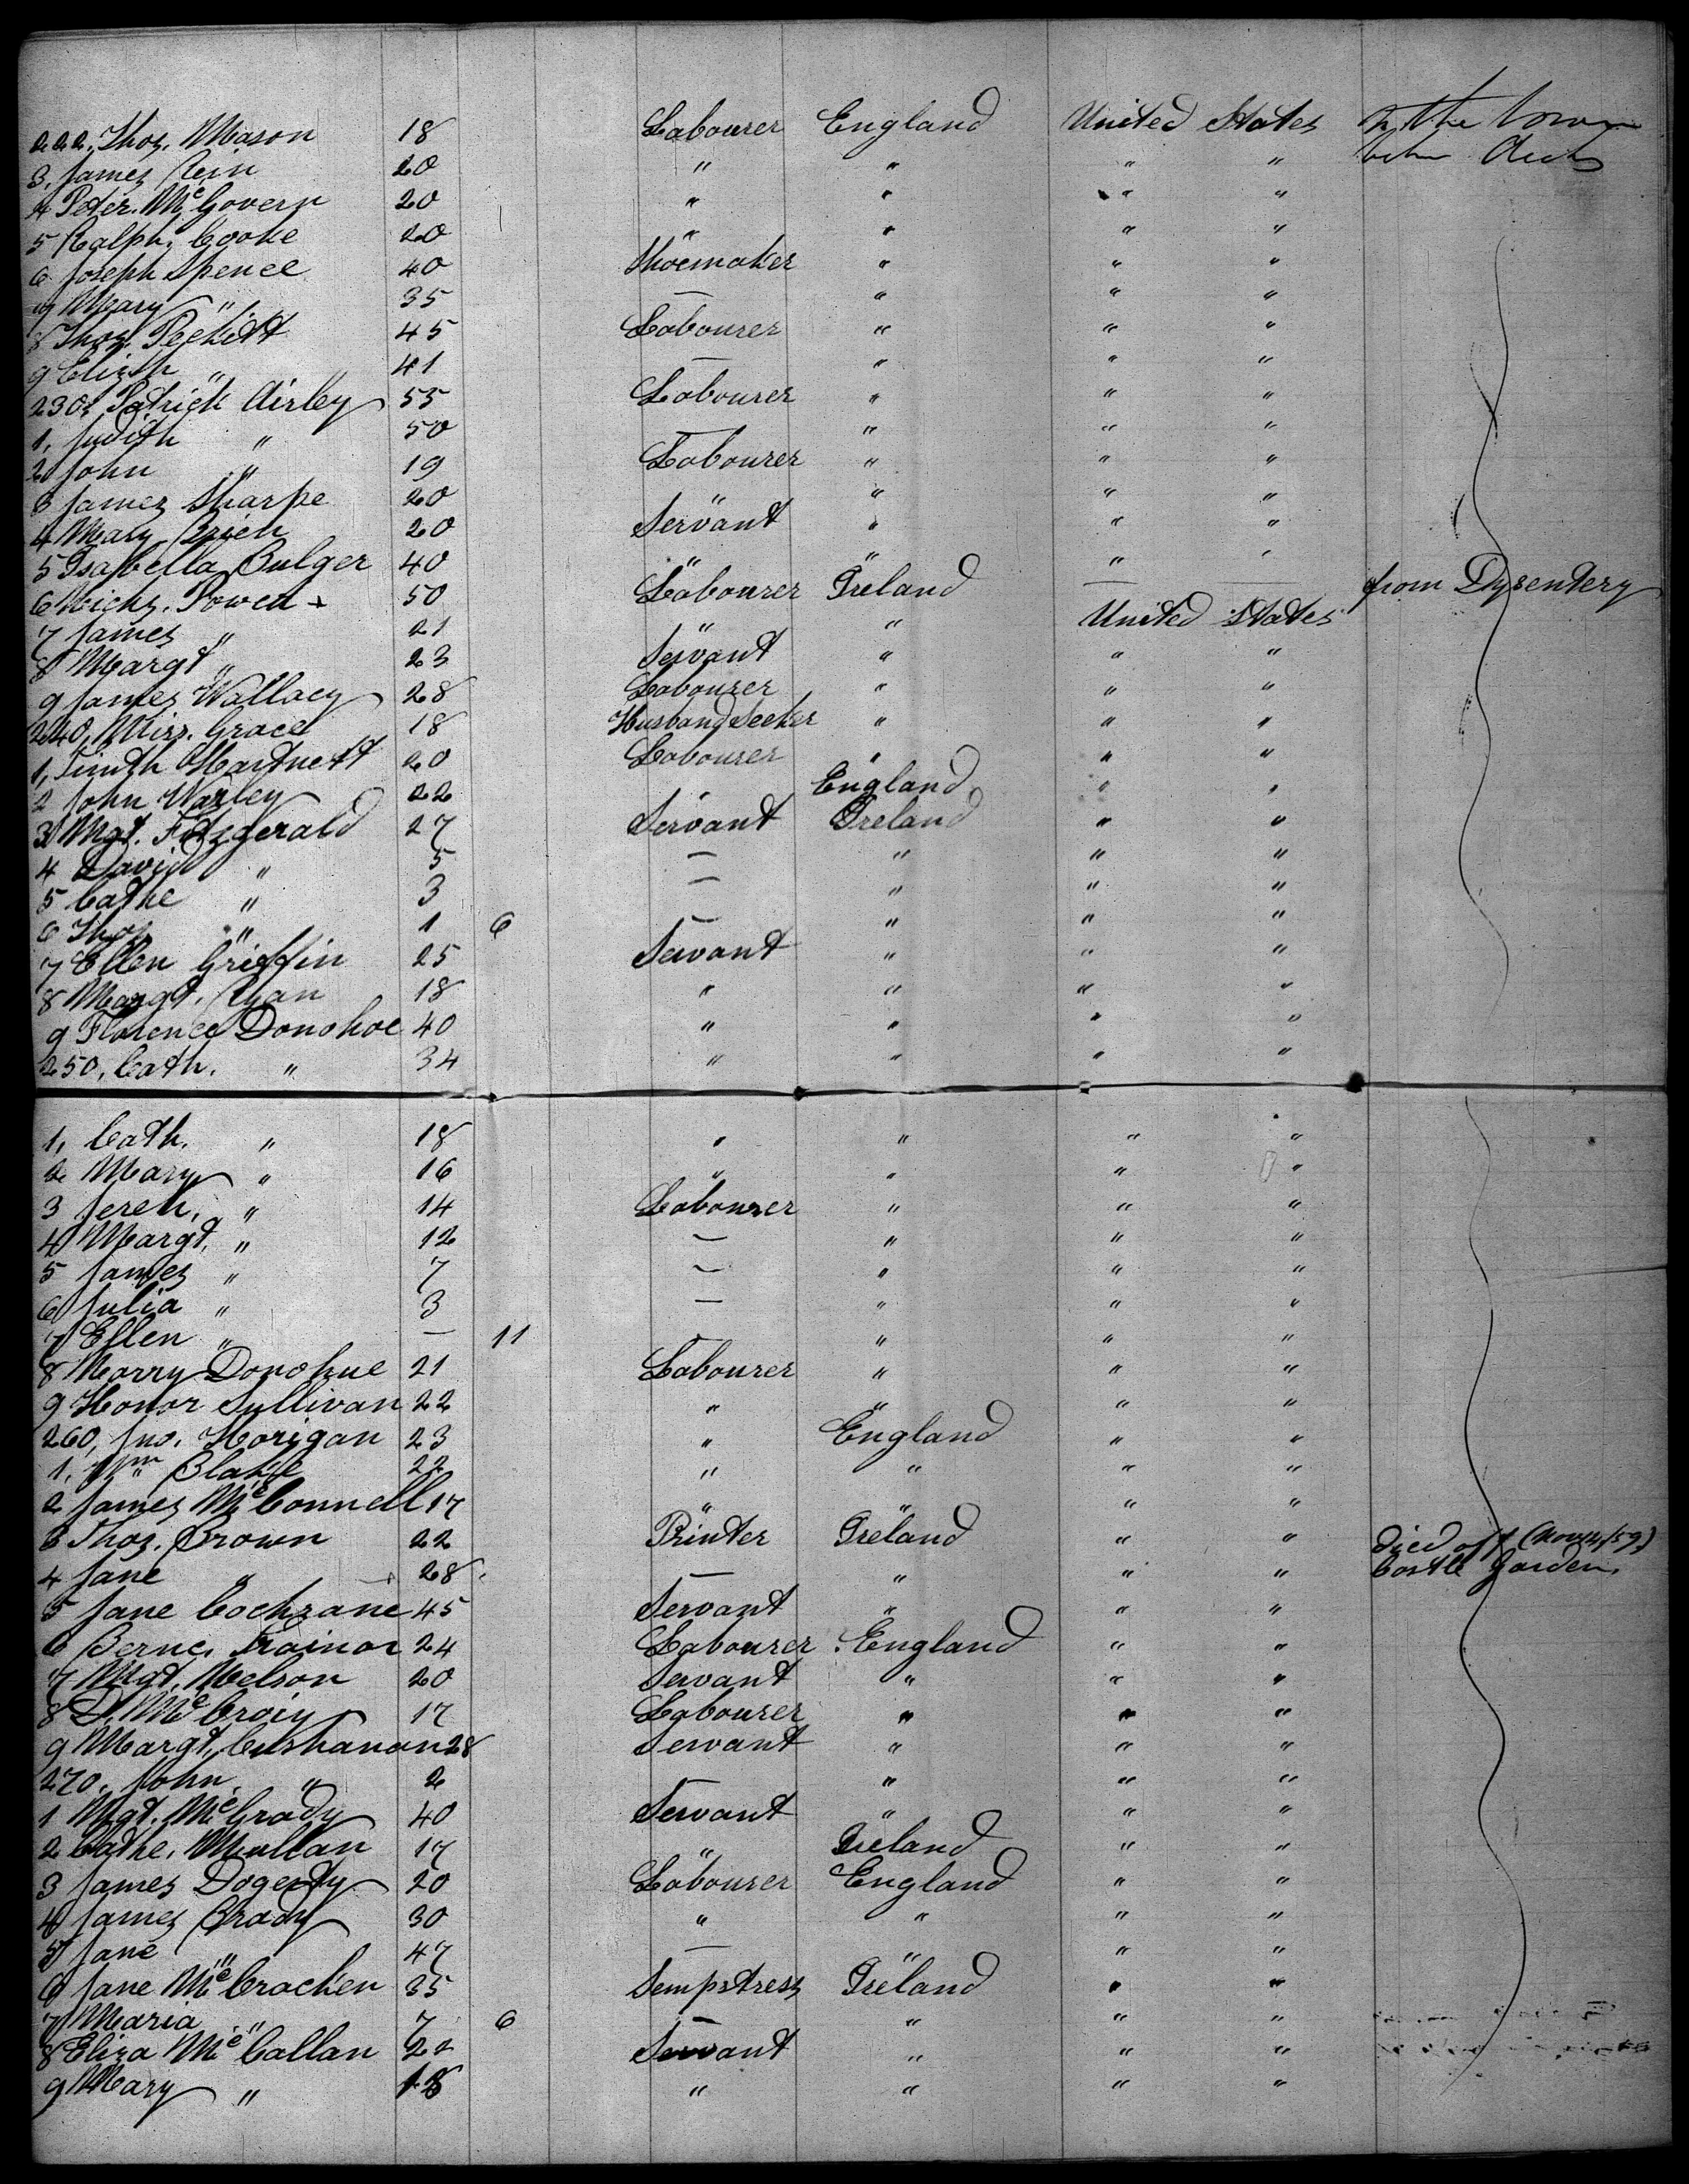 222, Thos. Mason 18 Labourer England United States In the lower
3, James Rein 20 " " " " between decks
4 Peter. McGovern 20 " " " "
5 Ralph. Cooke 20 " " " "
6 Joseph Spence 40 Shoemaker " " "
7 Mary " 35 — " " "
8 Thos. Peckitt 45 Labourer " " "
9 Elizth " 41 — " " "
230, Patrick Airley 55 Labourer " " "
1, Judith " 50 — " " "
2 John " 19 Labourer " " "
3 James Sharpe 20 " " " "
4 Mary Brien 20 Servant " " "
5 Isabella Bulger 40 " " "
6 Nichs. Power + 50 Labourer Ireland — — from Dysentery
7 James " 21 " " United States
8 Margt " 23 Servant " " "
9 James Wallacy 28 Labourer " " "
240, Miss. Grace 18 Husband Seeker " " "
1, Timth Hartnett 20 Labourer " " "
2 John Warley 22 " England " "
3 Mgt. Fitzgerald 27 Servant Ireland " "
4 David " 5 — " " "
5 Cathe " 3 — " " "
6 Thos " 1 6 — " " "
7 Ellen Griffin 25 Servant " " "
8 Margt. Ryan 18 " " " "
9 Florence Donohoe 40 " " " "
250, Cath. " 34 " " " "
1, Cath. " 18 " " " "
2 Mary " 16 " " " "
3 Jereh. " 14 Labourer " " "
4 Margt. " 12 — " " "
5 James " 7 — " " "
6 Julia " 3 — " " "
7 Ellen " — 11 — " " "
8 Marry Donohue 21 Labourer " " "
9 Honor Sullivan 22 " " " "
260, Jno. Horigan 23 " England " "
1, Wm Blake 22 " " " "
2 James McConnell 17 " " " "
3 Thos. Brown 22 Printer Ireland " " Died off (Nov 4/59)
4 Jane " 28 — " " " Castle Garden.
5 Jane Cochrane 45 Servant " " "
6 Berne. Trainor 24 Labourer England " "
7 Mgt. Nelson 20 Servant " " "
8 D. McCroiy 17 Labourer " " "
9 Margt. Cushanan 28 Servant " " "
270. John " 2 — " " "
1 Mgt. McGrady 40 Servant " " "
2 Cathe. Mullan 17 " Ireland " "
3 James Dogerty 20 Labourer England " "
4 James Brady 30 " " " "
5 Jane " 47 — " " "
6 Jane McCracken 35 Sempstress Ireland " "
7 Maria " 7 6 — " " "
8 Eliza McCallan 22 Servant " " "
9 Mary " 18 " " " "